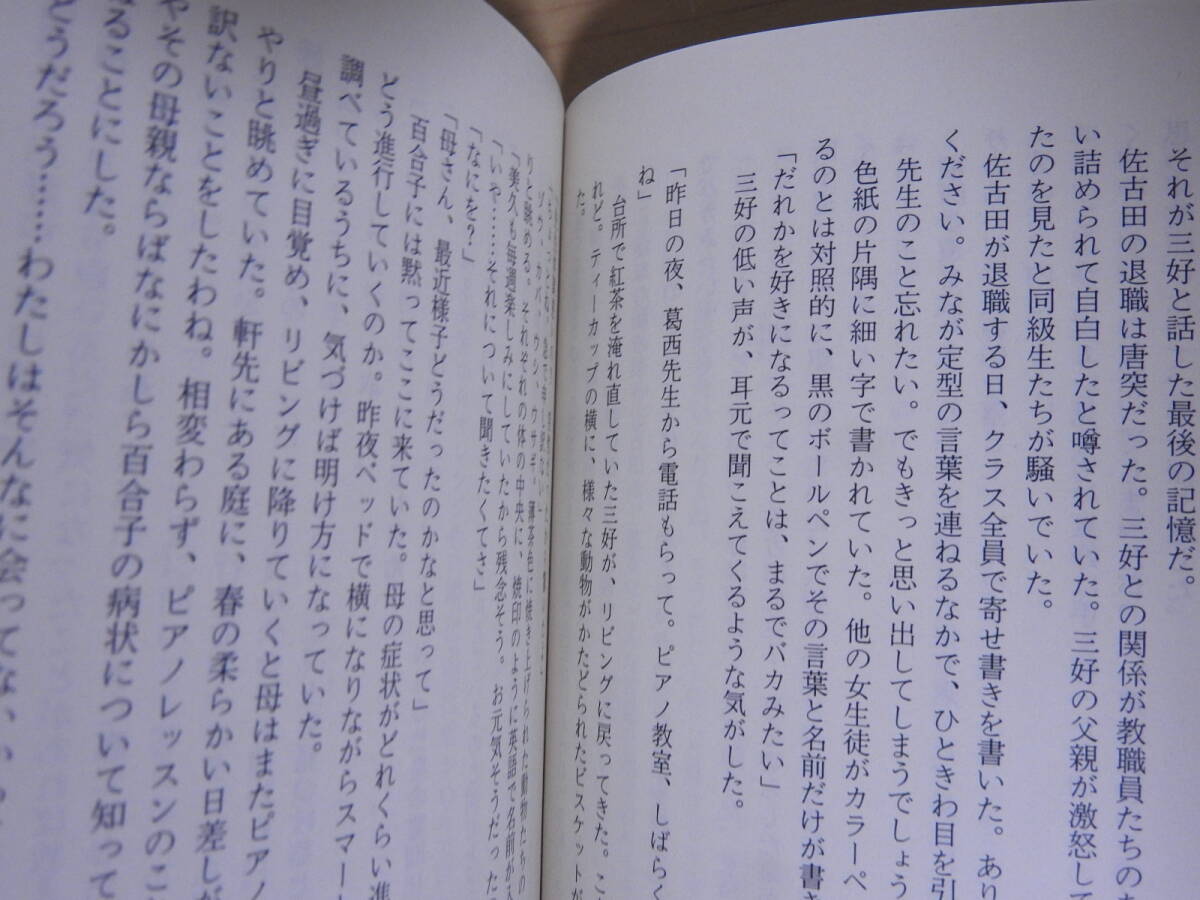 それが三好と話した最後の記憶だ。
佐古田の退職は唐突だった。三好との関係が教職員たちの
い詰められて自白したと噂されていた。三好の父親が激怒して
たのを見たと同級生たちが騒いでいた。
佐古田が退職する日、クラス全員で寄せ書きを書いた。あり
ください。みなが定型の言葉を連ねるなかで、ひときわ目を引
先生のこと忘れたい。でもきっと思い出してしまうでしょう
色紙の片隅に細い字で書かれていた。他の女生徒がカラーペ
るのとは対照的に、黒のボールペンでその言葉と名前だけが書
「だれかを好きになるってことは、まるでバカみたい」
三好の低い声が、耳元で聞こえてくるような気がした。
「昨日の夜、葛西先生から電話もらって。ピアノ教室、しばらく
ね」
台所で紅茶を淹れ直していた三好が、リビングに戻ってきた。こ
れど。ティーカップの横に、様々な動物がかたどられたビスケットが
た。
ゾウ、カバ、ウシ、ウサギ。薄茶色に焼き上げられた動物たちの
りと眺める。それぞれの体の中央に、焼印のように英語で名前が
「美久も毎週楽しみにしていたから残念そう。お元気そうだった
「いや……それについて聞きたくてさ」
「なにを？」
「母さん、最近様子どうだったのかなと思って」
百合子には黙ってここに来ていた。母の症状がどれくらい進
どう進行していくのか。昨夜ベッドで横になりながらスマート
調べているうちに、気づけば明け方になっていた。
昼過ぎに目覚め、リビングに降りていくと母はまたピアノ
やりと眺めていた。軒先にある庭に、春の柔らかい日差しが
訳ないことをしたわね。相変わらず、ピアノレッスンのこ
やその母親ならばなにかしら百合子の病状について知って
ることにした。
どうだろう……わたしはそんなに会ってない